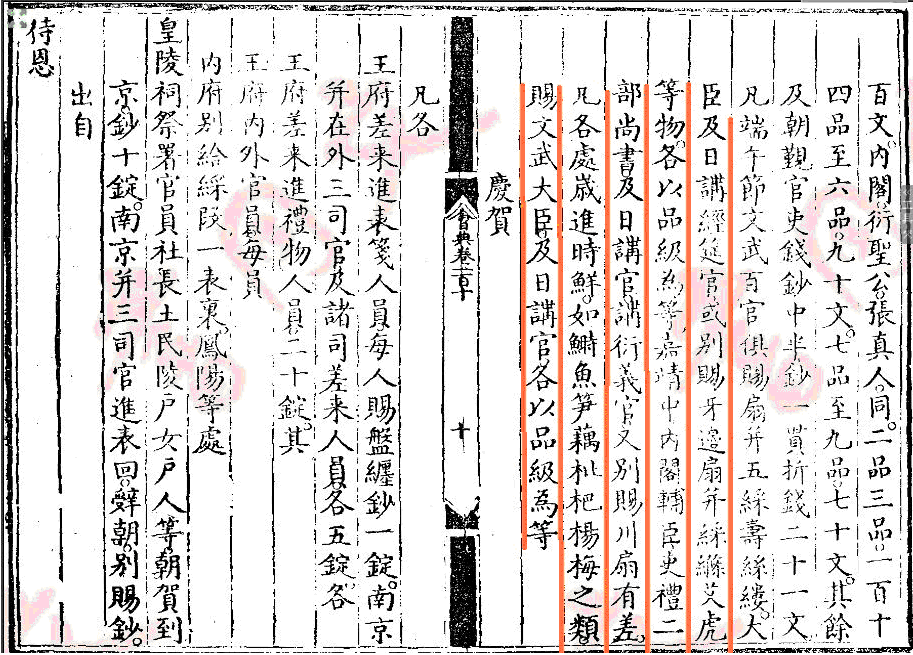 百文。內閣。衍聖公。張真人。同。二品三品。一百十
四品至六品。九十文。七品至九品。七十文。其餘
及朝覲官吏錢鈔中半鈔一貫折錢二十一文
凡端午節文武百官俱賜扇并五綵壽絲縷。大
臣及日講經筵官或別賜牙邊扇并綵縧艾虎
等物。各以品級為等。嘉靖中內閣輔臣吏禮二
部尚書及日講官講衍義官又別賜川扇有差。
凡各處歲進時鮮。如鰣魚笋藕枇杷楊梅之類
賜文武大臣及日講官各以品級為等
慶賀
會典卷二百十
十
凡各
王府差來進表箋人員每人賜盤纏鈔一錠。南京
并在外三司官及諸司差來人員。各五錠各
王府差來進禮物人員二十錠。其
王府內外官員每員
內府別給綵段一表裏。鳳陽等處
皇陵祠祭署官員社長土民陵戶女戶人等朝賀到
京鈔十錠。南京并三司官進表回。辭朝。別賜鈔。
出自
待恩